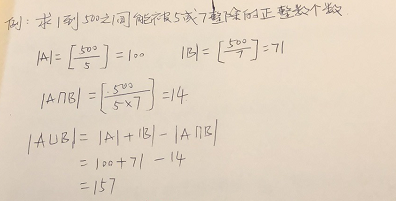 例：求1到500之间能被5或7整除的正整数个数
|A|=[500/5]=100 |B|=[500/7]=71
|A∩B|=[500/5×7]=14
|A∪B|=|A|+|B|-|A∩B|
=100+71-14
=157